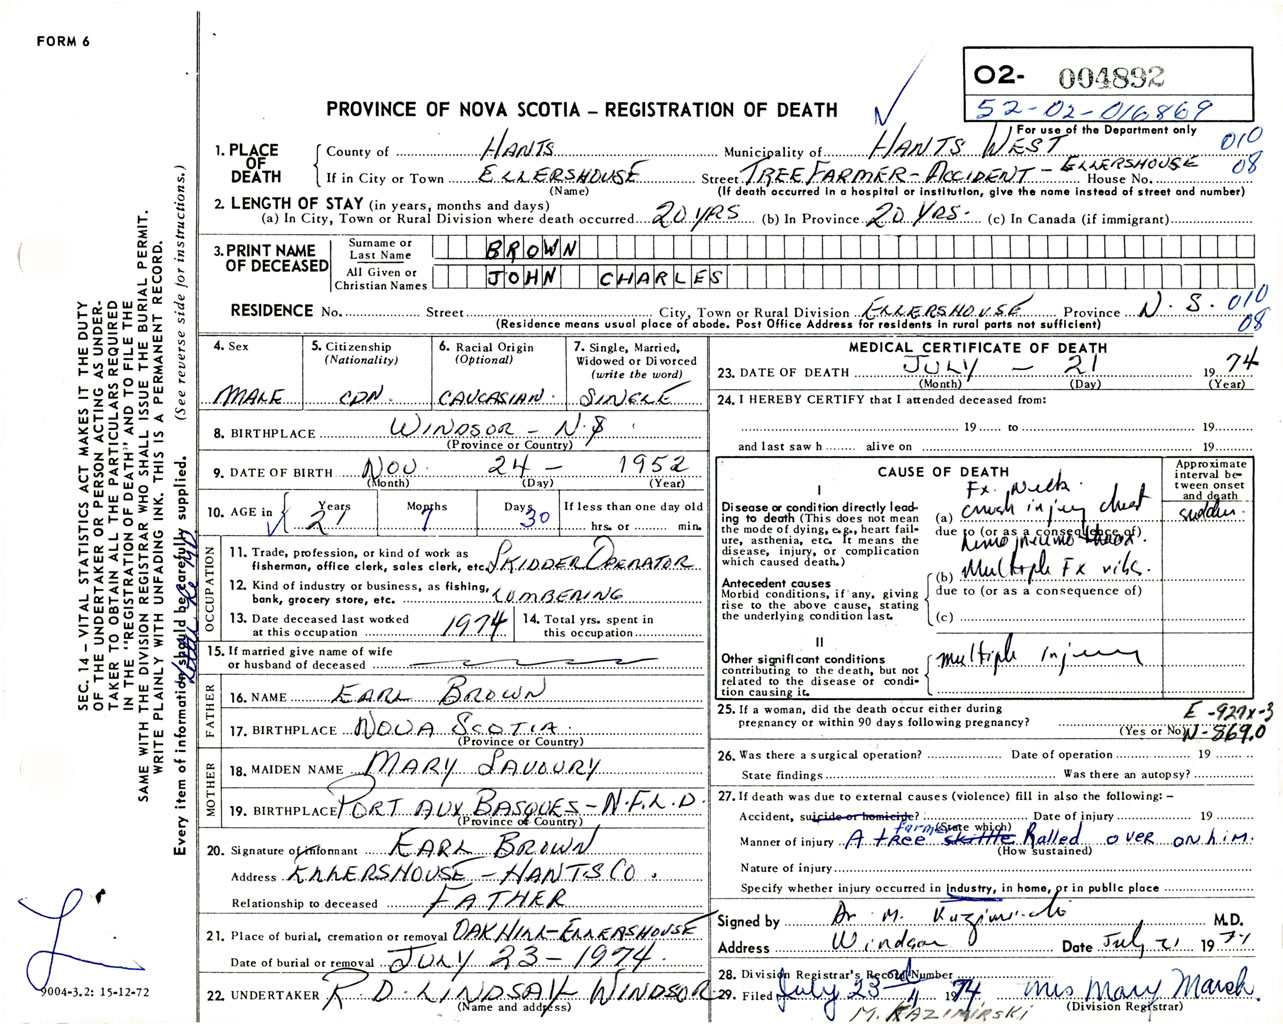 FORM 6
O2- 004892
52-02-016869
PROVINCE OF NOVA SCOTIA – REGISTRATION OF DEATH
For use of the Department only
1. PLACE OF DEATH
County of HANTS Municipality of HANTS WEST 010
If in City or Town ELLERSHOUSE Street TREE FARMER - ACCIDENT - ELLERSHOUSE House No. 08
(Name) (If death occurred in a hospital or institution, give the name instead of street and number)
2. LENGTH OF STAY (in years, months and days)
(a) In City, Town or Rural Division where death occurred 20 YRS (b) In Province 20 YRS. (c) In Canada (if immigrant)
3. PRINT NAME OF DECEASED
Surname or Last Name BROWN
All Given or Christian Names JOHN CHARLES
RESIDENCE No. Street City, Town or Rural Division ELLERSHOUSE Province N.S. 010
(Residence means usual place of abode. Post Office Address for residents in rural parts not sufficient) 08
4. Sex MALE
5. Citizenship (Nationality) CDN.
6. Racial Origin (Optional) CAUCASIAN.
7. Single, Married, Widowed or Divorced (write the word) SINGLE
8. BIRTHPLACE WINDSOR - N.S
(Province or Country)
9. DATE OF BIRTH NOV. 24 - 1952
(Month) (Day) (Year)
10. AGE in Years 21 Months 7 Days 30 If less than one day old
hrs. or min.
OCCUPATION
11. Trade, profession, or kind of work as fisherman, office clerk, sales clerk, etc. SKIDDER OPERATOR
12. Kind of industry or business, as fishing, bank, grocery store, etc. LUMBERING
13. Date deceased last worked at this occupation 1974
14. Total yrs. spent in this occupation
15. If married give name of wife or husband of deceased
FATHER
16. NAME EARL BROWN
17. BIRTHPLACE NOVA SCOTIA
(Province or Country)
MOTHER
18. MAIDEN NAME MARY SAVOURY
19. BIRTHPLACE PORT AUX BASQUES - N.F.L.D.
(Province or Country)
20. Signature of informant EARL BROWN
Address ELLERSHOUSE - HANTS CO.
Relationship to deceased FATHER
21. Place of burial, cremation or removal OAKHILL - ELLERSHOUSE
Date of burial or removal JULY 23 - 1974.
22. UNDERTAKER R. D. LINDSAY WINDSOR
(Name and address)
MEDICAL CERTIFICATE OF DEATH
23. DATE OF DEATH JULY - 21 19 74
(Month) (Day) (Year)
24. I HEREBY CERTIFY that I attended deceased from:
19 to 19
and last saw h alive on 19
CAUSE OF DEATH
Approximate interval between onset and death
I
Disease or condition directly leading to death (This does not mean the mode of dying, e.g., heart failure, asthenia, etc. It means the disease, injury, or complication which caused death.)
Fx. Neck.
(a) crush injury chest sudden.
due to (or as a consequence of)
Hemo pneumo thorax.
(b) Multiple Fx ribs.
due to (or as a consequence of)
(c)
Antecedent causes
Morbid conditions, if any, giving rise to the above cause, stating the underlying condition last.
II
Other significant conditions contributing to the death, but not related to the disease or condition causing it.
multiple injury
25. If a woman, did the death occur either during pregnancy or within 90 days following pregnancy?
(Yes or No)
E-927x-3
N-869.0
26. Was there a surgical operation? Date of operation 19
State findings Was there an autopsy?
27. If death was due to external causes (violence) fill in also the following: –
Accident, suicide or homicide? Date of injury 19
(State which)
Manner of injury A tree farmer skittle Rolled over on him.
(How sustained)
Nature of injury
Specify whether injury occurred in industry, in home, or in public place
Signed by Dr. M. Kazimirski M.D.
Address Windsor Date July 21 19 74
28. Division Registrar's Record Number
29. Filed July 23rd 1974 Mrs Mary Marsh
(Division Registrar)
M. KAZIMIRSKI
SEC. 14 – VITAL STATISTICS ACT MAKES IT THE DUTY
OF THE UNDERTAKER OR PERSON ACTING AS UNDER-
TAKER TO OBTAIN ALL THE PARTICULARS REQUIRED
IN THE "REGISTRATION OF DEATH" AND TO FILE THE
SAME WITH THE DIVISION REGISTRAR WHO SHALL ISSUE THE BURIAL PERMIT.
WRITE PLAINLY WITH UNFADING INK. THIS IS A PERMANENT RECORD.
Every item of information should be carefully supplied. (See reverse side for instructions.)
9004-3.2: 15-12-72